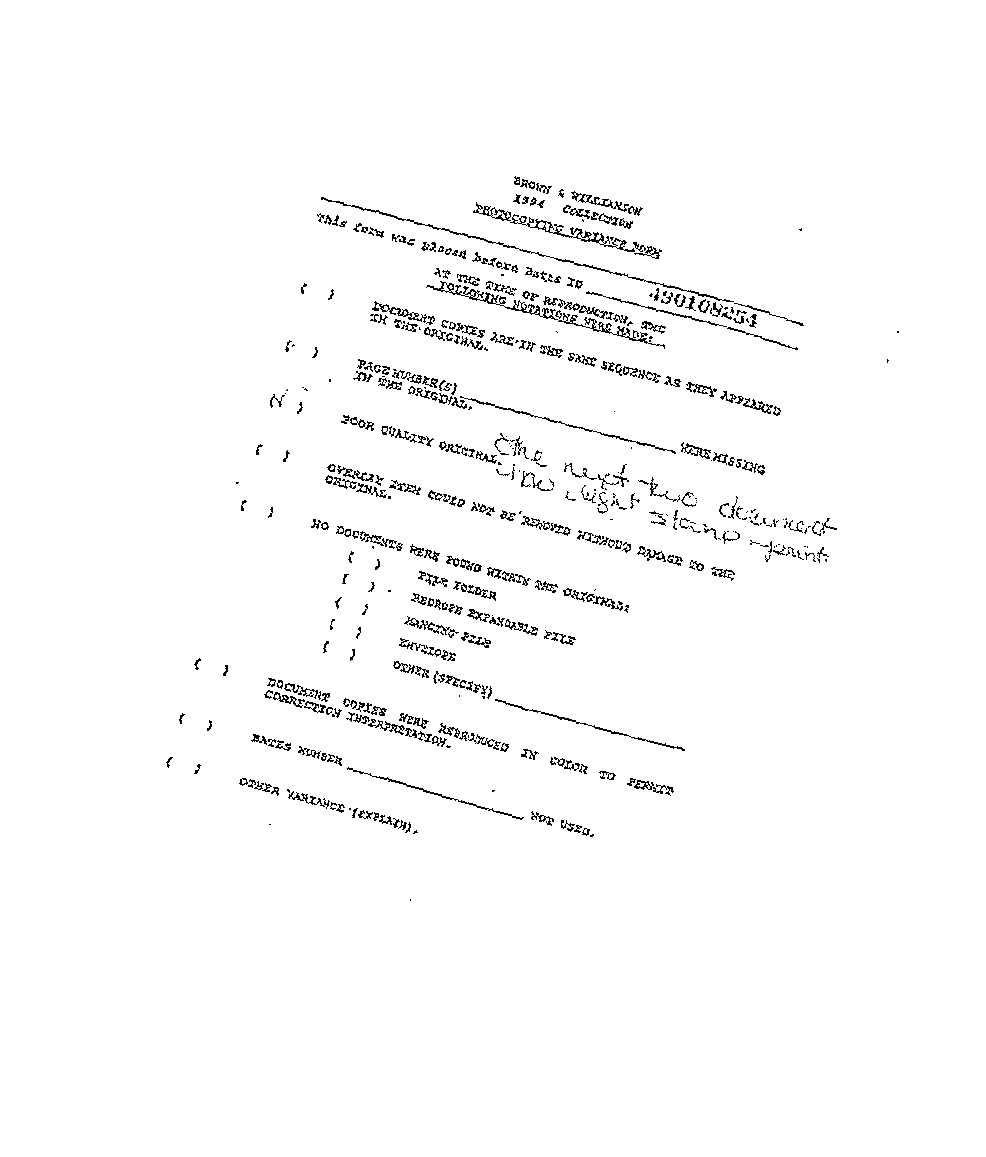 BROWN & WILLIAMSON
1994 COLLECTION
PHOTOCOPYING VARIANCE FORM
This form was placed before Bates ID 490108254
AT THE TIME OF REPRODUCTION, THE
FOLLOWING NOTATIONS WERE MADE:
( ) DOCUMENT COPIES ARE IN THE SAME SEQUENCE AS THEY APPEARED
IN THE ORIGINAL.
( ) PAGE NUMBER(S) WERE MISSING
IN THE ORIGINAL.
(✓) POOR QUALITY ORIGINAL. The next two document
light stamp print
( ) OVERLAY ITEM COULD NOT BE REMOVED WITHOUT DAMAGE TO THE
ORIGINAL.
( ) NO DOCUMENTS WERE FOUND WITHIN THE ORIGINAL:
( ) FILE FOLDER
( ) REDROPE EXPANDABLE FILE
( ) HANGING FILE
( ) ENVELOPE
( ) OTHER (SPECIFY)
( ) DOCUMENT COPIES WERE REPRODUCED IN COLOR TO PERMIT
CORRECTION INTERPRETATION.
( ) BATES NUMBER NOT USED.
( ) OTHER VARIANCE (EXPLAIN).